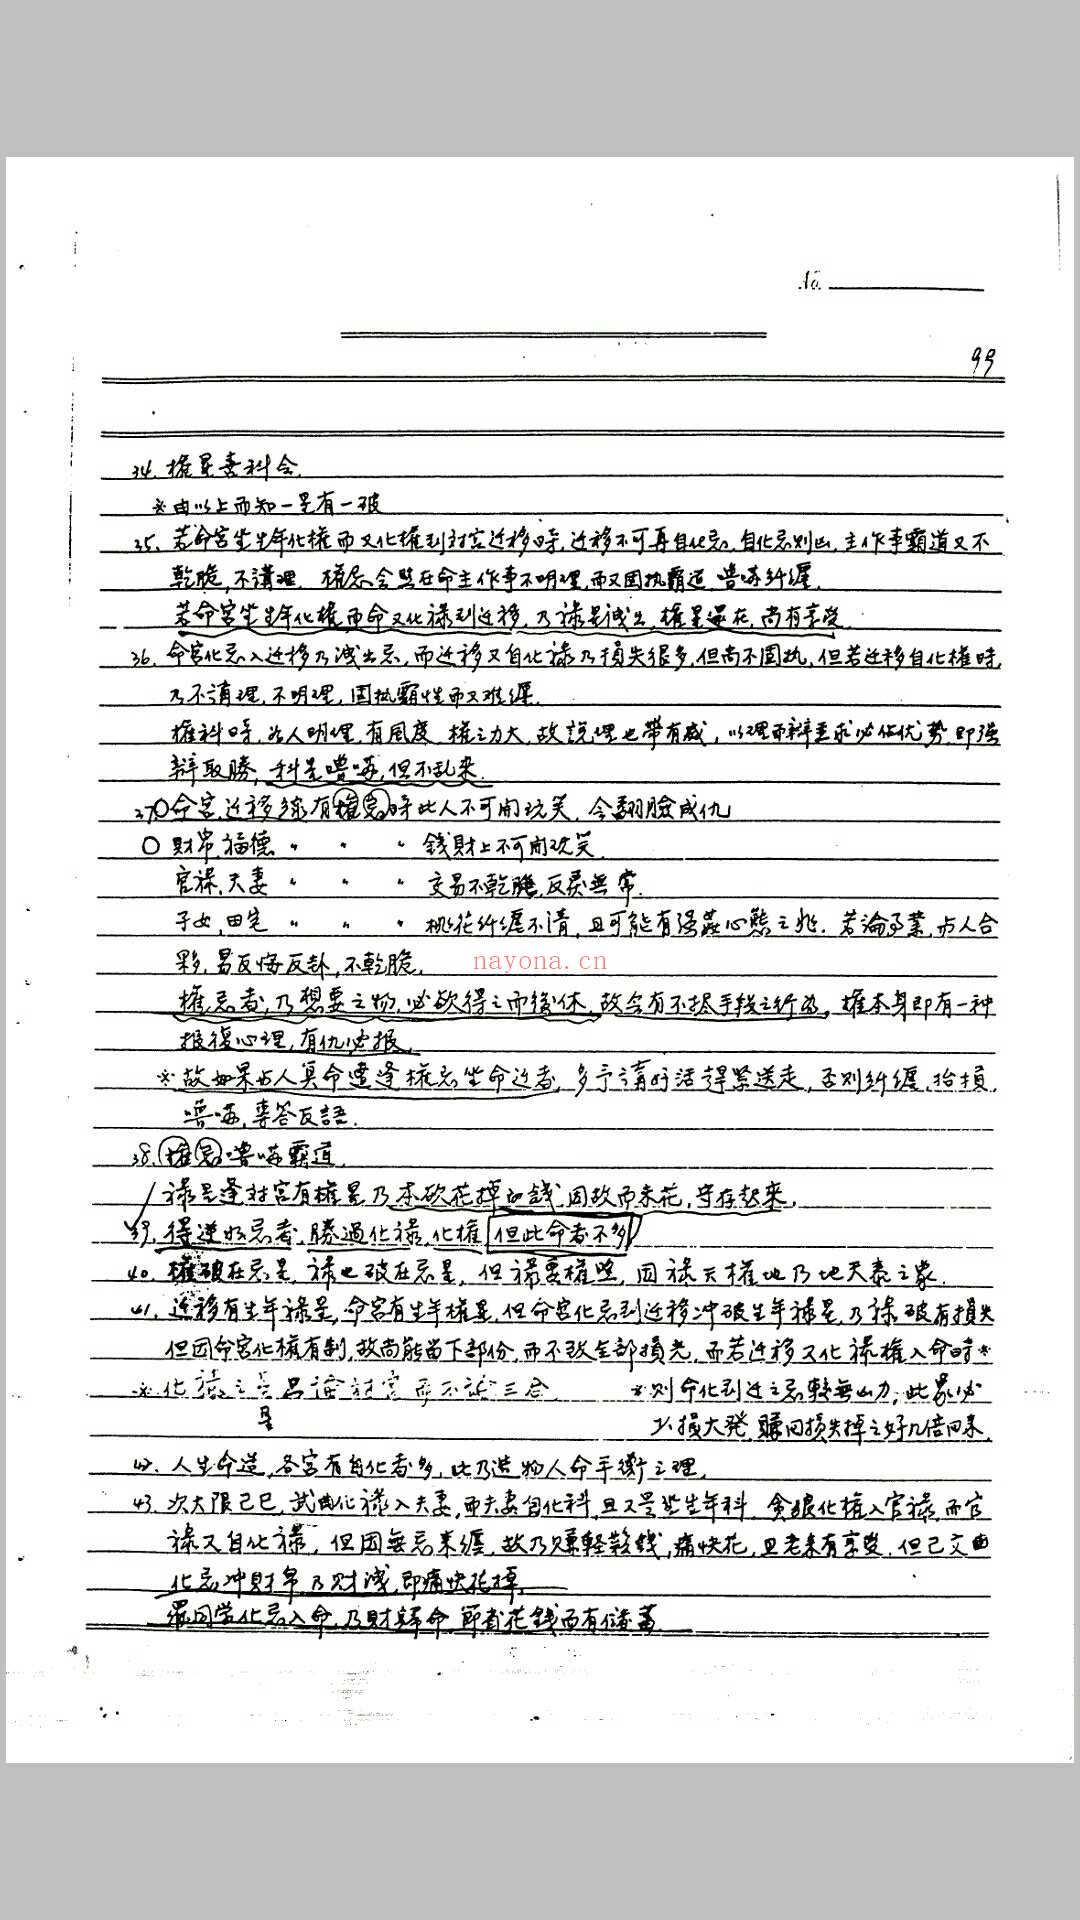 No.
99
34. 權星喜科会.
※由以上而知一星有一破
35. 若命宮坐生年化權而又化權到対宮迁移時, 迁移不可再自化忌, 自化忌則凶, 主作事霸道又不
乾脆, 不講理. 權忌会照在命主作事不明理, 而又固执霸道, 嚕囌纠纏.
若命宮坐生年化權而命又化祿到迁移, 乃祿星洩出, 權星還在, 尚有享受.
36. 命宮化忌入迁移乃洩出忌, 而迁移又自化祿乃損失很多, 但尚不固执, 但若迁移自化權時,
乃不講理, 不明理, 固执霸性而又难纏.
權科時, 为人明理, 有風度, 權之力大, 故說理也帶有威, 以理而辯要求必佔优势, 即强
辯取勝, 科是嚕囌, 但不乱来.
37. ○命宮, 迁移线有權忌時此人不可開玩笑, 会翻臉成仇
○ 財帛, 福德 〃 〃 〃 錢財上不可開玩笑.
官祿, 夫妻 〃 〃 〃 交易不乾脆, 反覆無常.
子女, 田宅 〃 〃 〃 桃花纠纏不清, 且可能有强姦心態之兆. 若論事業, 与人合
夥, 易反悔反卦, 不乾脆.
nayona.cn
權忌者, 乃想要之物, 必欲得之而後休, 故会有不择手段之行為。權本身即有一种
报復心理, 有仇必报.
※故如果与人算命遭逢權忌坐命迁者, 多予講好活趕緊送走, 否則纠纏, 抬損,
嚕囌, 專答反語.
38. 權忌嚕囌霸道.
祿星逢対宮有權星乃本欲花掉的錢, 因故而未花, 守存起来.
39. 得逆水忌者, 勝過化祿, 化權 但此命者不多
40. 權破在忌星, 祿也破在忌星, 但祿要權照, 因祿天權地乃地天泰之象.
41. 迁移有生年祿星, 命宮有生年權星, 但命宮化忌到迁移冲破生年祿星, 乃祿破有損失
但因命宮化權有制, 故尚能留下部份, 而不致全部損光, 而若迁移又化祿權入命時※
※化祿之星只論対宮而不論三合 ※則命化到迁之忌轉無凶力, 此象必
是
少損大発, 賺回損失掉之好几倍回来.
42. 人生命造, 各宮有自化者多, 此乃造物人命平衡之理.
43. 次大限己巳, 武曲化祿入夫妻, 而夫妻自化科, 且又是坐生年科. 貪狼化權入官祿, 而官
祿又自化祿, 但因無忌来纏, 故乃賺輕鬆錢, 痛快花, 且老来有享受. 但己文曲
化忌冲財帛乃財洩, 即痛快花掉.
同学化忌入命, 乃財歸命, 節省花錢而有儲蓄